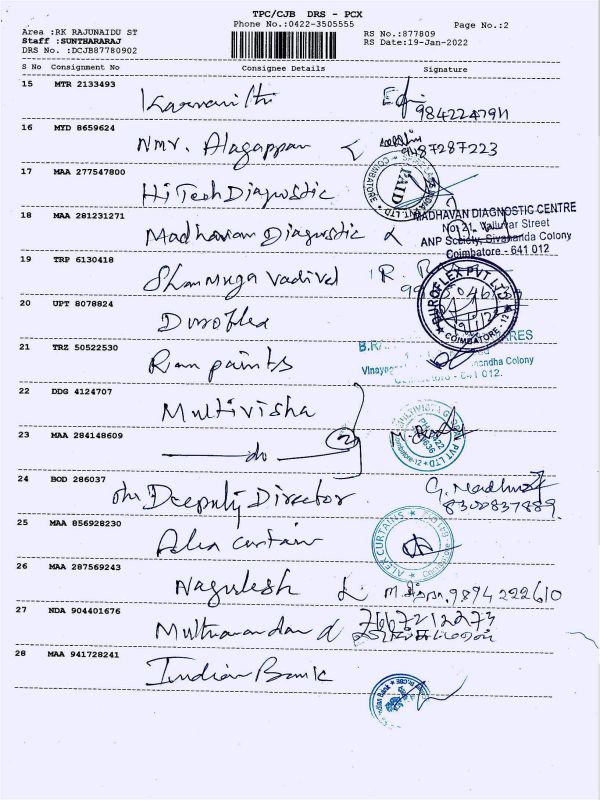 TPC/CJB DRS - PCX
Phone No.:0422-3505555
Page No.:2
Area :RK RAJUNAIDU ST
Staff :SUNTHARARAJ
DRS No. :DCJB87780902
RS No.:877809
RS Date:19-Jan-2022
S No Consignment No Consignee Details Signature
15 MTR 2133493
Karvanithi
9842247911
16 MYD 8659624
Nmr. Alagappan
9487287223
17 MAA 277547800
HiTech Diagnostic
PAID
COIMBATORE
18 MAA 281231271
Madhavan Diagnostic
MADHAVAN DIAGNOSTIC CENTRE
No. 21, Valluvar Street
ANP Society, Sivananda Colony
Coimbatore - 641 012
19 TRP 6130418
Shanmuga Vadivel
R.
20 UPT 8078824
Duroflex
DUROFLEX PVT LTD
COIMBATORE - 12
21 TRZ 50522530
Ram paints
Colony
641 012.
22 DDG 4124707
Multivisha
23 MAA 284148609
do 2
24 BOD 286037
The Deeputy Director
8300837889
25 MAA 856928230
Alex curtain
ALEX CURTAINS
26 MAA 287569243
Nagulesh
9894222610
27 NDA 904401676
7667212273
28 MAA 941728241
Indian Bank
Indian Bank